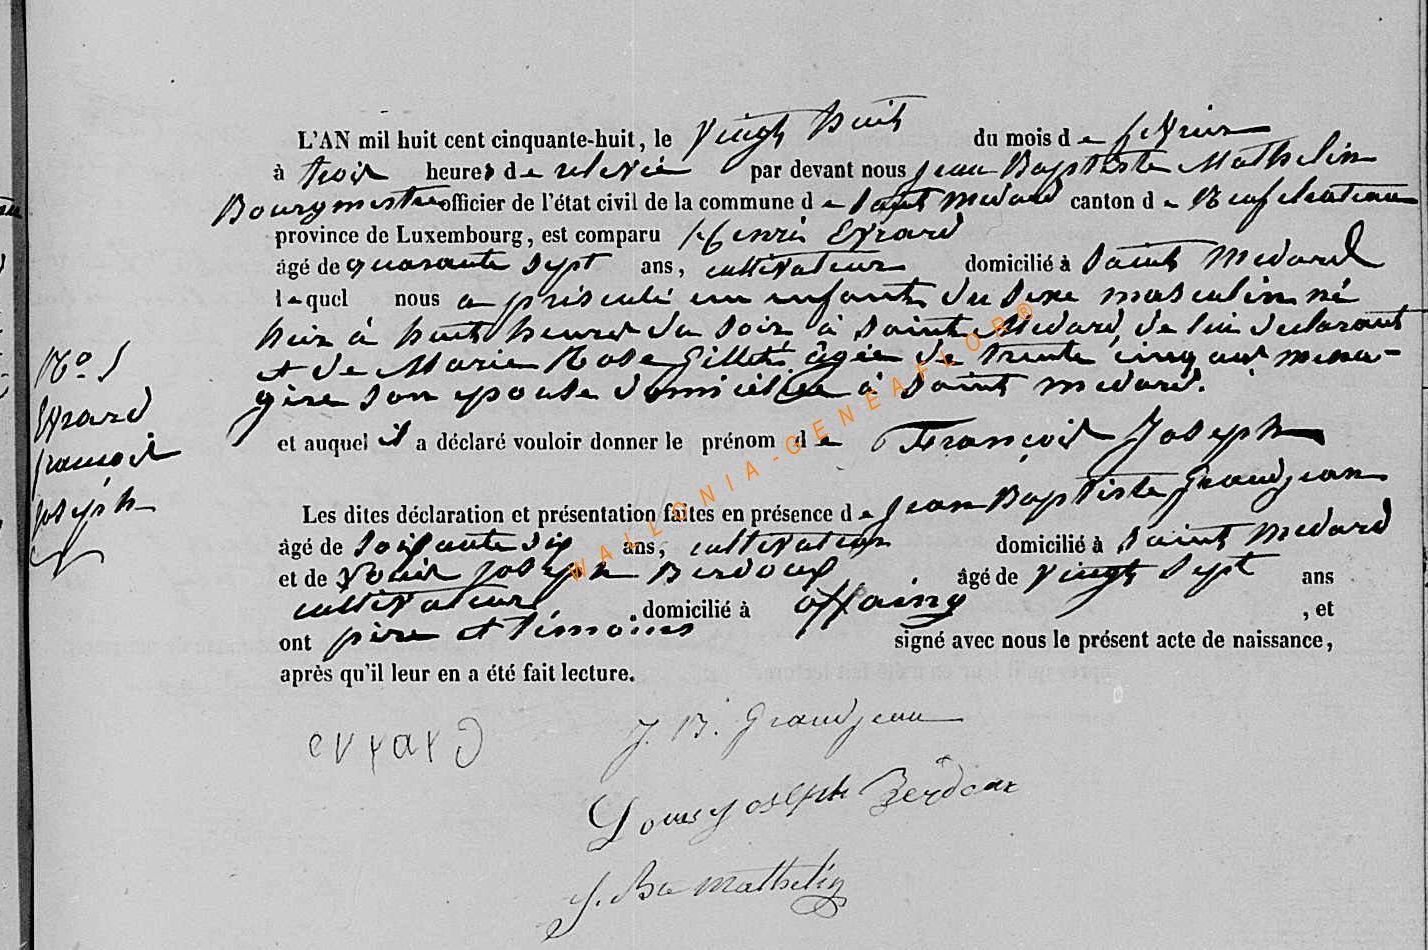 L'AN mil huit cent cinquante-huit, le vingt huit du mois de fevrier
à trois heures de relevée par devant nous Jean Baptiste Mathelin
Bourgmestre officier de l'état civil de la commune de Saint Medard canton de Neufchateau
province de Luxembourg, est comparu Henri Evrard
âgé de quarante sept ans, cultivateur domicilié à Saint Medard
lequel nous a présenté un enfant du sexe masculin né
hier à huit heures du soir à Saint Medard, de lui declarant
et de Marie Rose Gillet âgée de trente cinq ans mena-
gère son epouse domiciliée à Saint Medard.
et auquel il a déclaré vouloir donner le prénom de François Joseph
Les dites déclaration et présentation faites en présence de Jean Baptiste Grandjean
âgé de soixante dix ans, cultivateur domicilié à Saint Medard
et de Louis Joseph Berdoux âgé de vingt sept ans
cultivateur, domicilié à Offaing, et
ont père et témoins signé avec nous le présent acte de naissance,
après qu'il leur en a été fait lecture.
No 5
Evrard
françois
joseph
evrard
J. B. Grandjean
Louis joseph Berdoux
J. Bte Mathelin
WALLONIA-GENEAFLOR®